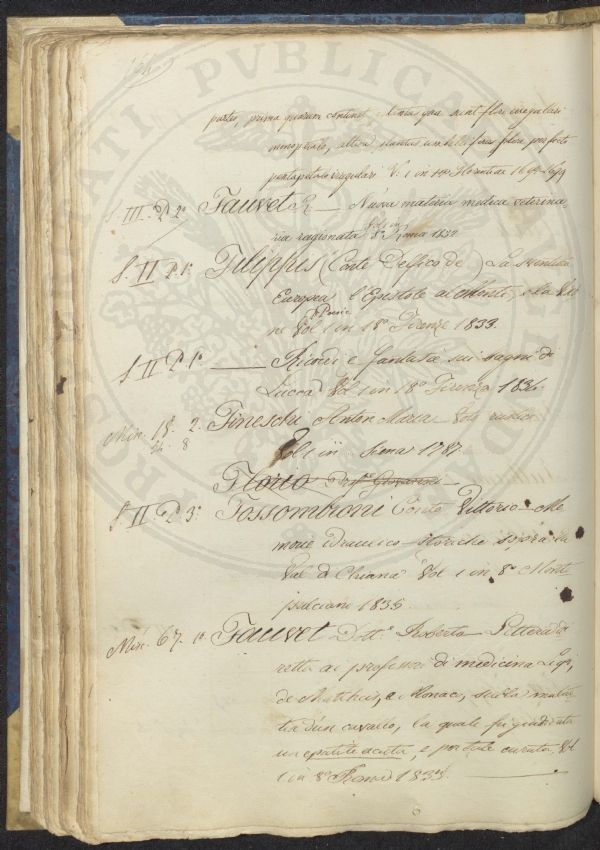 partes, prima quarum continet plantas quae sunt flore irregulari
monopetalo, altera plantas umbelliferas flore perfecto
pentapetalo irregulari V. 1 in
S. III. P. 2ª Fauvet R. — Nuova materia medica veterina-
ria ragionata Vol. 1 in 8º Roma 1832
S. II P. 1ª Filippis (Conte Delfico De) La
Europea l'Epistole al Monti, e la
ne e Poesie Vol 1 in 18º Firenze 1833.
S II P. 1ª ——— Ricordi e fantasia sui bagni di
Lucca Vol 1 in 18º Firenze 1834
Mis. 18. 2. Fineschi Anton Maria
8 Vol 1 in Siena 1787.
Florio Giovanni
S. II. P. 3ª Fossombroni Conte Vittorio — Me-
morie idraulico-storiche sopra la
Val di Chiana Vol 1 in 8º Monte
pulciano 1835
Mis. 67. 1ª Fauvet Dottº Roberto — Lettera di
retta ai professori di medicina
de e Monaco, sulla malat
tia d'un cavallo, la quale fu giudicata
un epatite acuta, e per tale curata, Vol
1 in 8º Roma 1833.